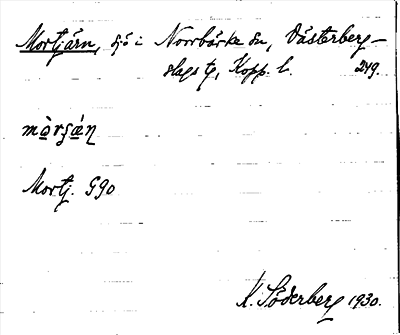 Mortjärn, sjö i Norrbärke sn, Västerberg-
slags tg, Kopp. l. 249.
mòrʂǽɳ
Mortj. G90
K. Söderberg 1930.